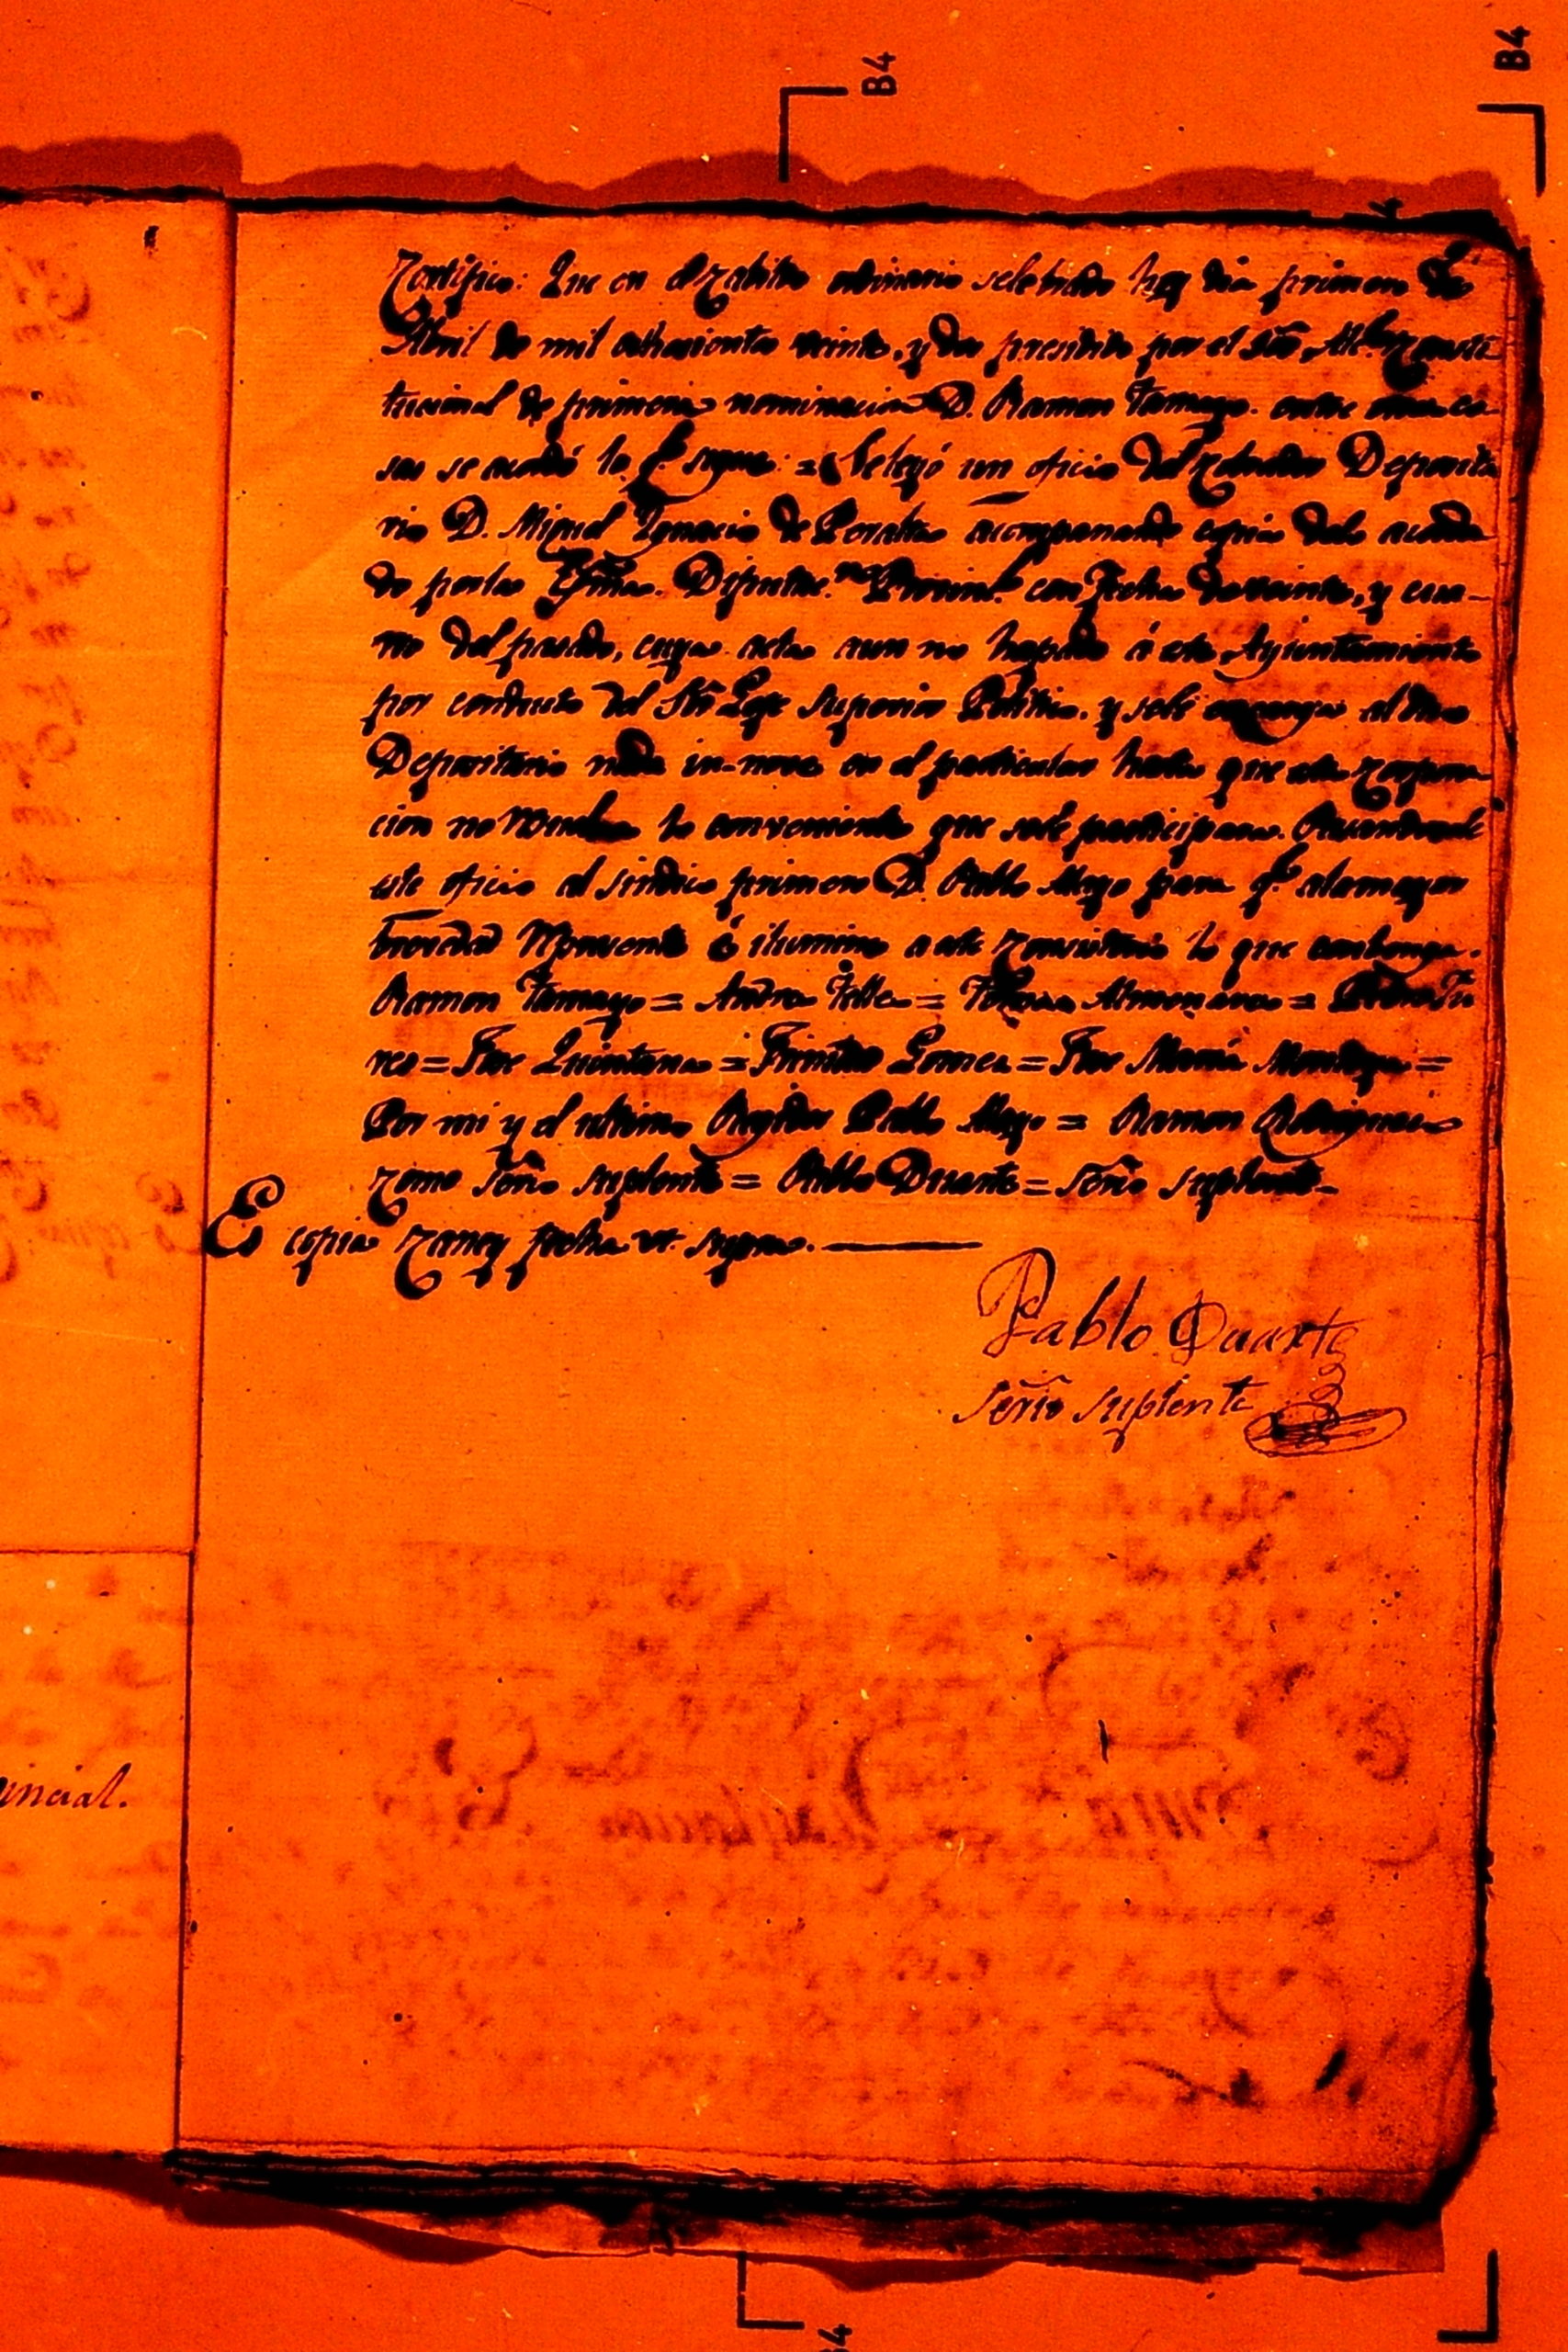 B4
B4
Zertifico: Que en el Zabildo ordinario selebrado hoy dia primero de
Abril de mil ochosientos veinte, y dos presidido por el Sõr. Alc.
tucional de primera nominacion D. Ramon Tamayo. entre otras co-
sas se acordó lo q.e sigue: = Seleyó un oficio del Depocita
rio D. Miguel Ignacio de Peralta acompañando copia delo acorda
do porla Exma. Diputac.on Provinl. con fecha deveinte, y cua-
tro del pasado, cuya acta aun no hapasado á este Ayuntamiento
por conducto del Sõr Gefe Superior Politico. y sele al dho
Depocitario nada in-nove en el particular hasta que esta Zorpora
cion no lo conveniente que sele participara.
este oficio al sindico primero D. Pablo Moyo para q.e alamayor
brevedad é ilumine a este Zonsistorio lo que combenga.
Ramon Tamayo = Andres Tellez = Almonasa =
res = Fco Quintana = Trinidad Gomez = Fco Maria =
Por mi y el ultimo Regidor Pablo Moyo = Ramon
Zomo Seño suplente = Pablo Duarte = Seño suplente-
Es copia Zaney fecha ut. supra.
Pablo Duarte
Seño suplente
incial.
B4